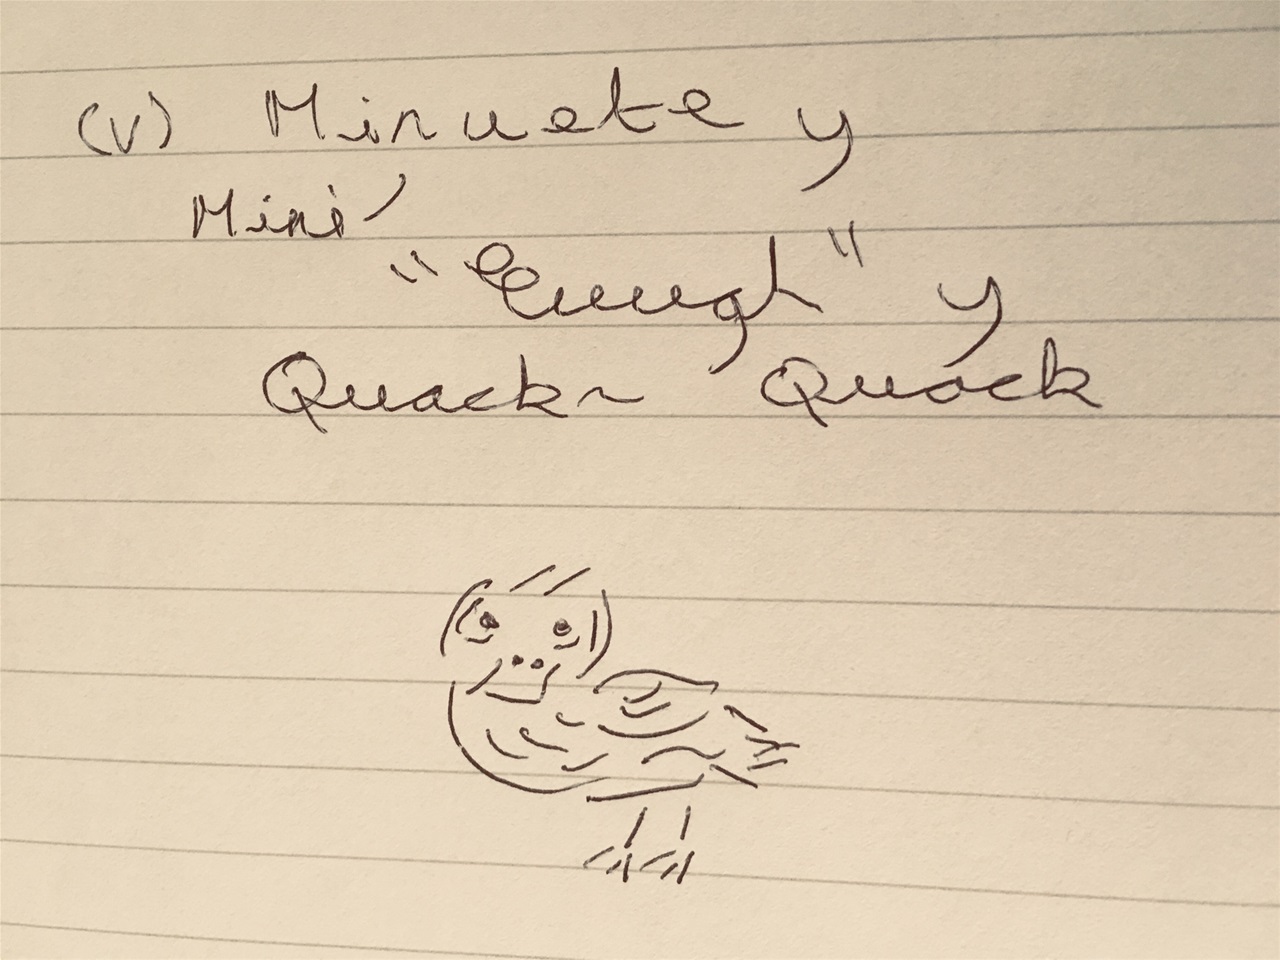 (v) Minuete y
Mini
"Euugh" y
Quack~ Quack